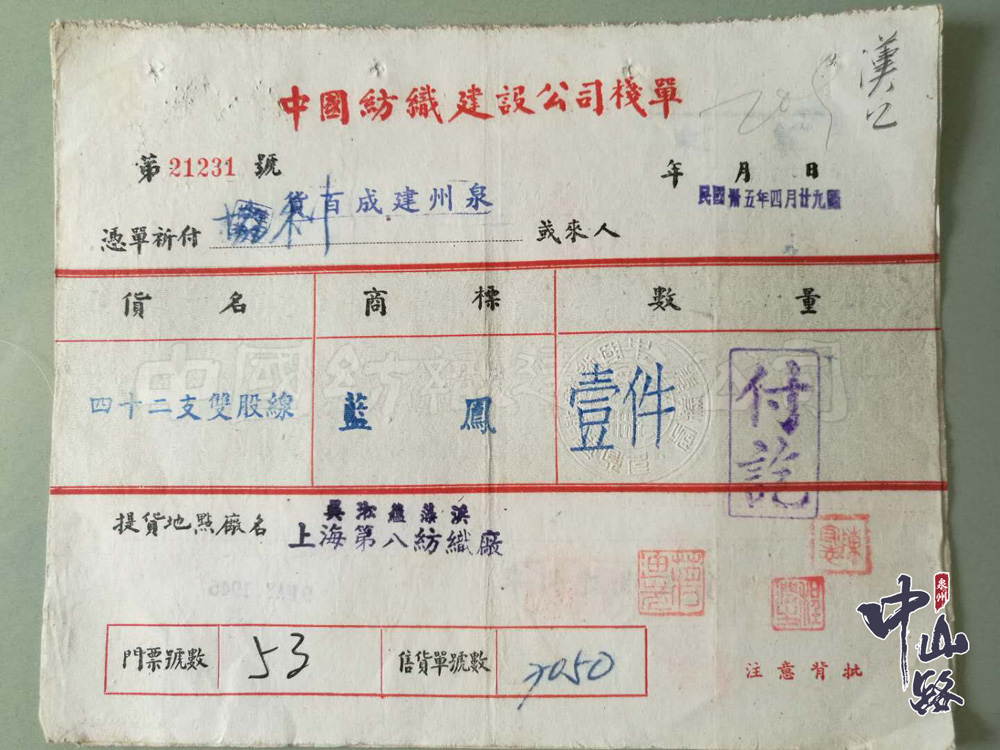 漢口
中國紡織建設公司棧單
第 21231 號
年 月 日
民國卅五年四月廿九
貨百成建州泉
憑單祈付
或來人
貨名 商標 數量
中國紡織建設公司
四十二支雙股線 藍鳳 壹件
付訖
吳淞蘊藻浜
提貨地點廠名 上海第八紡織廠
門票號數 53 售貨單號數 7050
注意背批
泉州
中山路